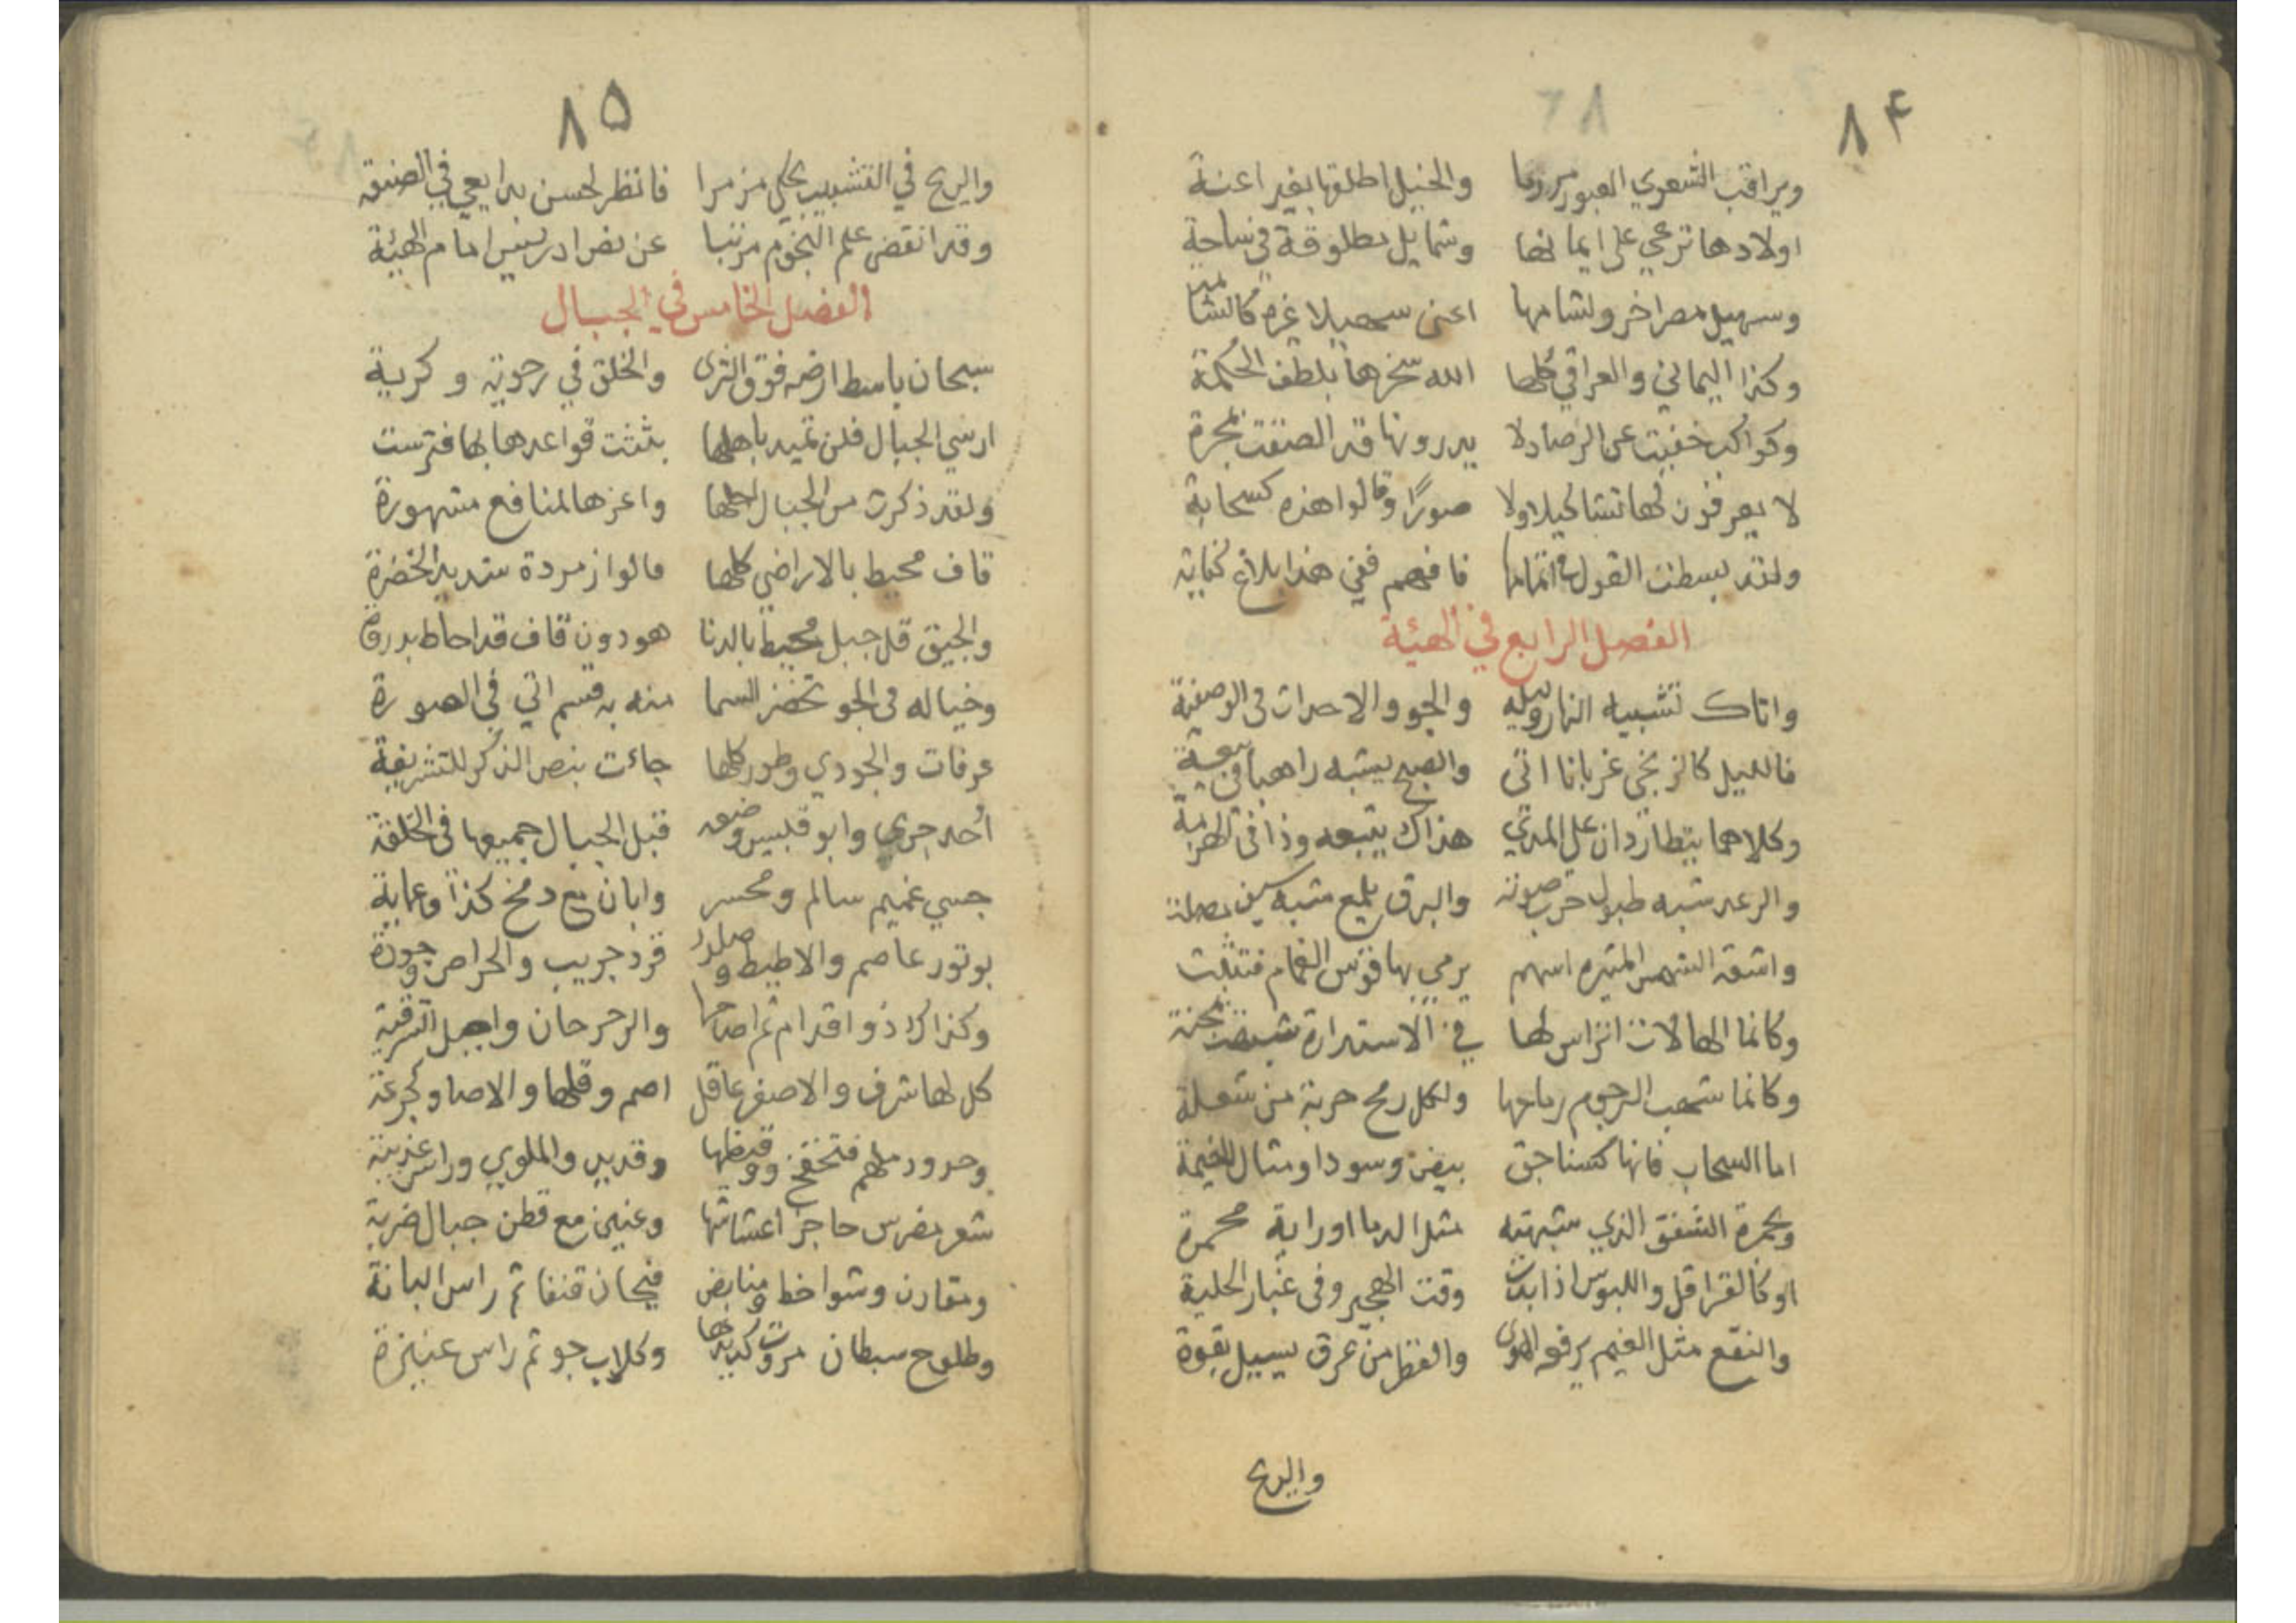 ٨٤
ويراقب الشعري العبور مرزما والخيل اطلقها بغير اعنة
اولادها ترعي على ايمانها وشمايل مطلوقة في ساحة
وسهيل مصر اخر ولشامها اعني سهيلا غره كالشامة
وكذا اليماني والعراقي كلها الله سخرها بلطف الحكمة
وكواكب خفيت عن الرصاد لا يدرونها قد الصقت بمجرة
لا يعرفون لها تشاكيلا ولا صورًا وقالوا هذه كسحابة
ولقد بسطت القول في اتمامها فافهم ففي هذا بلاغ كفاية
الفصل الرابع في الهيئة
واتاك تشبيه النهار وليله والجو والاحداث في الوصفية
فالليل كالزنجي غربانا اتى والصبح يشبه راهبا في بيعة
وكلاهما يتطاردان على المدي هذاك يتبعه وذا في الهزمة
والرعد شبه طبول حرب صوته والبرق يلمع مشبه سيف
واشعة الشمس المنيره اسهم يرمي بها قوس الغمام فتثبت
وكانما الهالات اتراس لها في الاستدارة
وكانما شهب الرجوم رماحها ولكل رمح حربة من شعلة
اما السحاب فانها كسناجق بيض وسود او مثال الخيمة
وبحمرة الشفق الذي شبهته مثل الدما او راية محمرة
او كالقراقل واللبوس اذا بدت وقت الهجير وفى غبار الحلبة
والنقع مثل الغيم يرفعه الهوى والقطر من عرق يسيل بقوة
والريح
٨٥
والريح في التشبيب يحكي مزمرا فانظر لحسن بدايعي في الصنعة
وقد انقضى علم النجوم مرتبا عن نص ادريس امام الهيئة
الفصل الخامس في الجبال
سبحان باسط ارضه فوق الثرى والخلق في رحوية وكرية
ارسي الجبال فلن تميد باهلها بثبتت قواعدها بها فترست
ولقد ذكرت من الجبال اجلها واعزها لمنافع مشهورة
قاف محيط بالاراضي كلها قالوا زمردة شديد الخضرة
والجيق قل جبل محيط بالدنا هو دون قاف قد احاط بدورة
وخياله في الجو تخضر السما منه به قسم اتي في الصورة
عرفات والجودي وطور كلها جاءت بنص الذكر للتشريفة
أحد حري وابو قبيس وضعه قبل الجبال جميعها في الخلقة
جسي غميم سالم ومحسر وابان مع دمخ كذا وعماية
بوتور عاصم والاطيط وصلدد قرد جريب والحراص
وكذاك ذو اقدام ثم اضاحها والرحرحان واجبل الشرقية
كل لها شرف والاصفر عاقل اصم وقلها والاصاد كجرعة
وحرود ملهم فتخفخ وقيظها وقديد والملوي وراس عذيبة
شعر مضرس حاجز اعشاشها وعنين مع قطن جبال ضرية
ومقارن وشواخط ومنابض فيحان قنفا ثم راس البانة
وطلوح سبطان مروت كديدها وكلاب جو ثم راس عنيزة